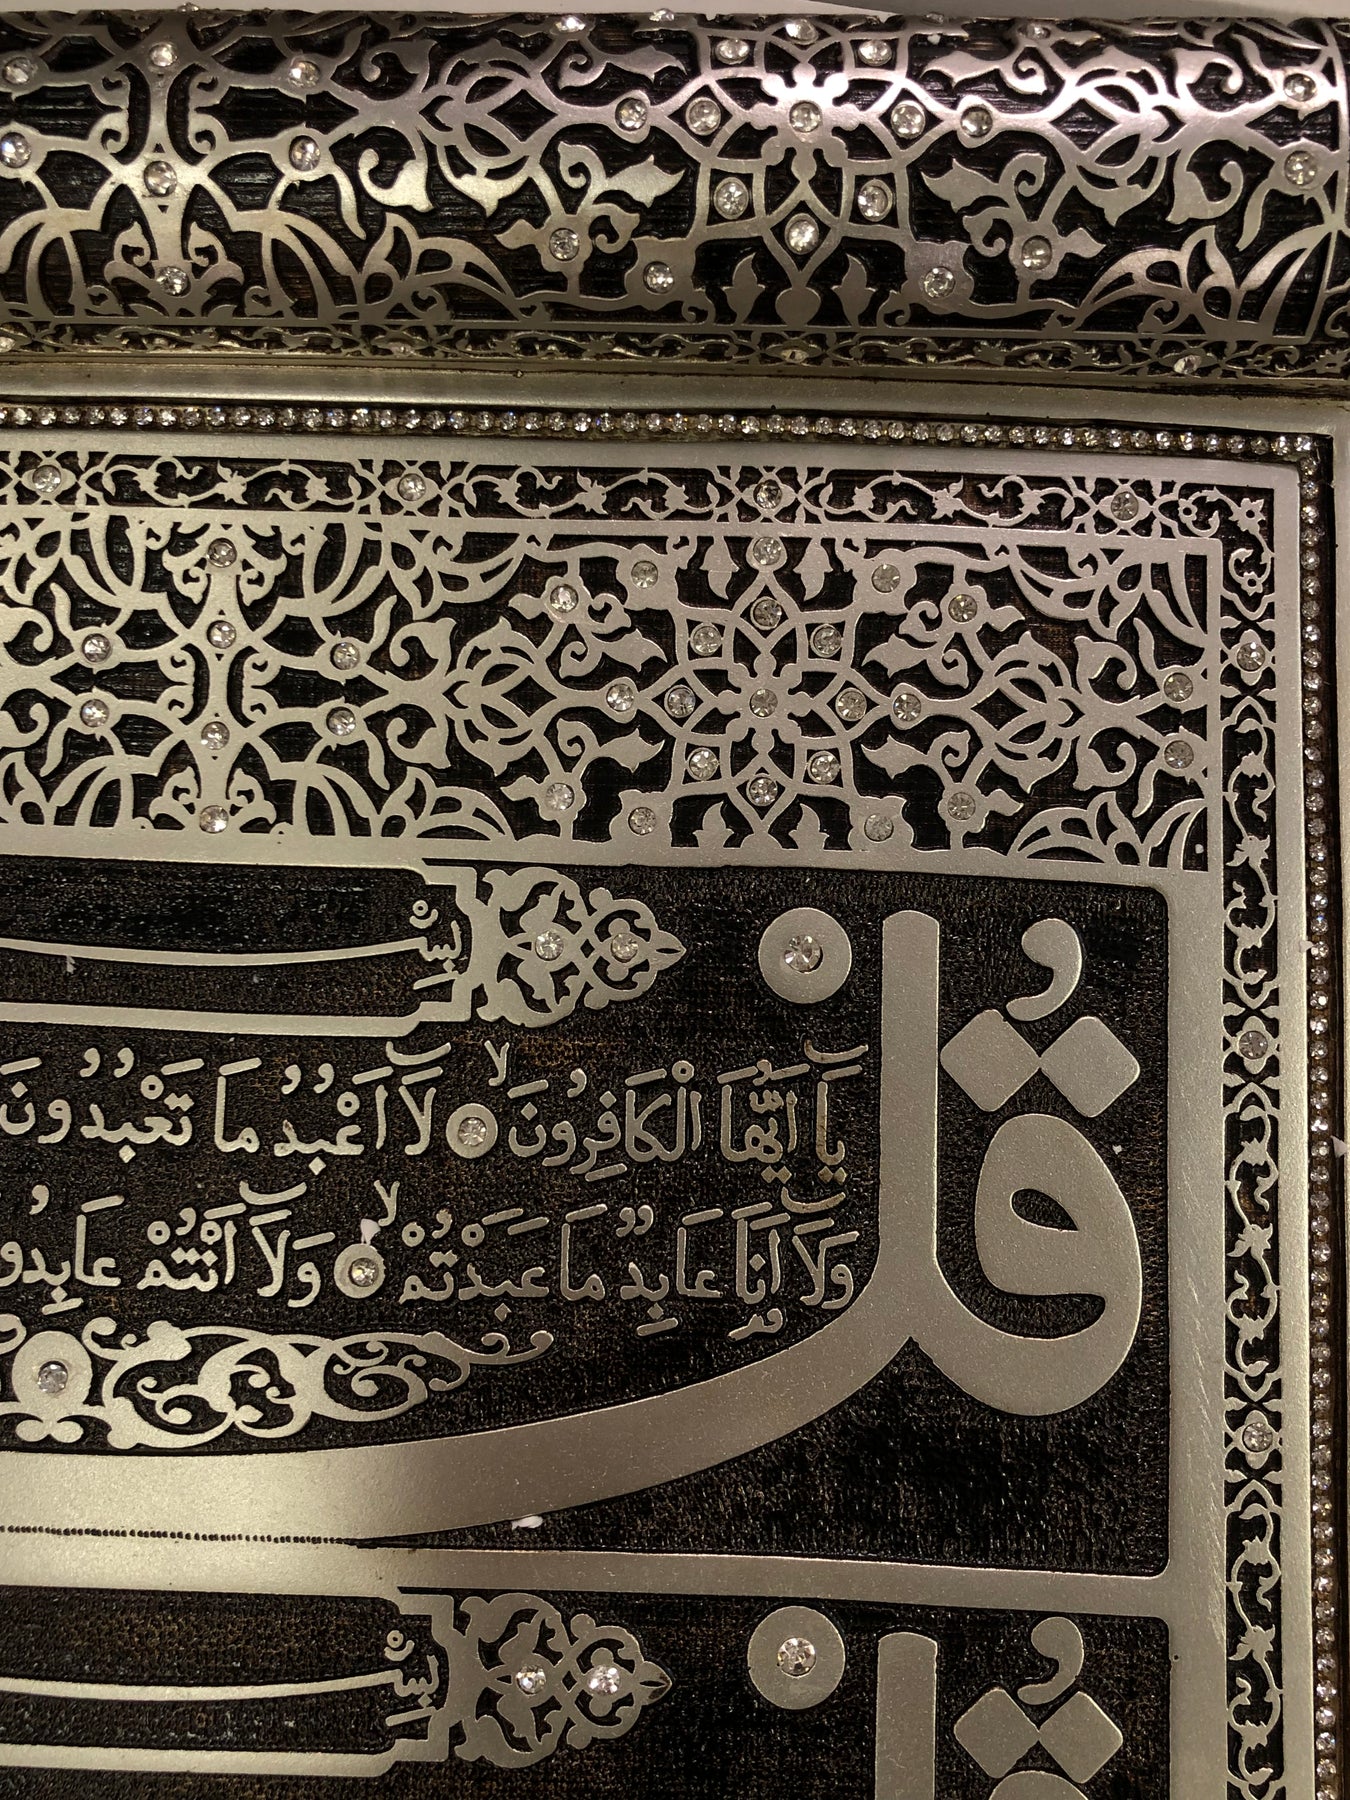 بِسْ
قُلْ
يَٓا اَيُّهَا الْكَافِرُونَۙ لَٓا اَعْبُدُ مَا تَعْبُدُونَ
وَلَٓا اَنَا۬ عَابِدٌ مَا عَبَدْتُمْۙ وَلَٓا اَنْتُمْ عَابِدُو
بِسْ
قُ